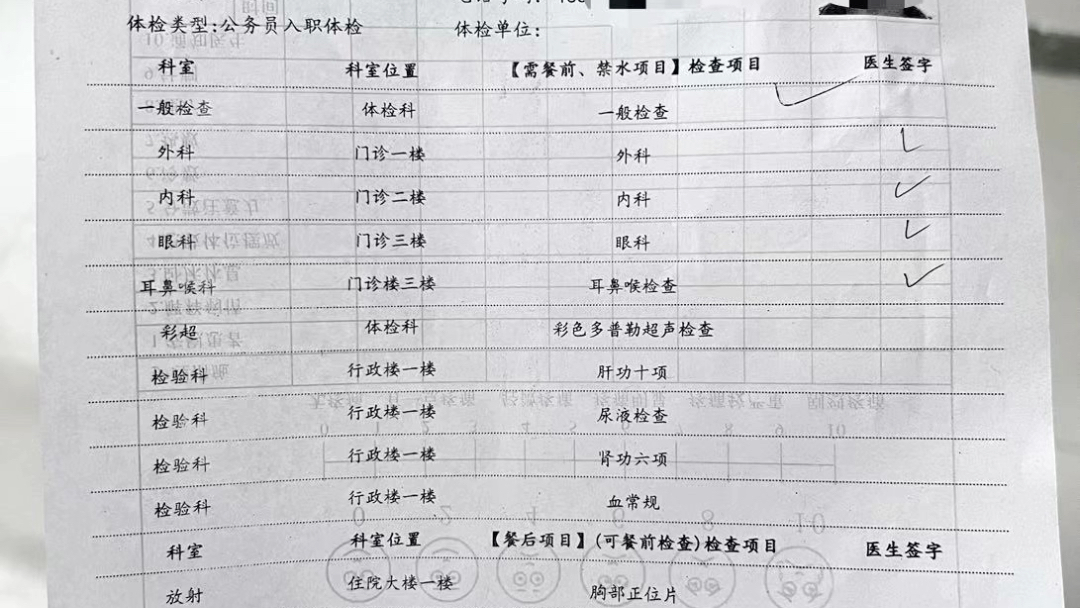 体检类型:公务员入职体检 体检单位:
科室 科室位置 【需餐前、禁水项目】检查项目 医生签字
一般检查 体检科 一般检查
外科 门诊一楼 外科
内科 门诊二楼 内科
眼科 门诊三楼 眼科
耳鼻喉科 门诊楼三楼 耳鼻喉检查
彩超 体检科 彩色多普勒超声检查
检验科 行政楼一楼 肝功十项
检验科 行政楼一楼 尿液检查
检验科 行政楼一楼 肾功六项
检验科 行政楼一楼 血常规
科室 科室位置 【餐后项目】(可餐前检查)检查项目 医生签字
放射 住院大楼一楼 胸部正位片